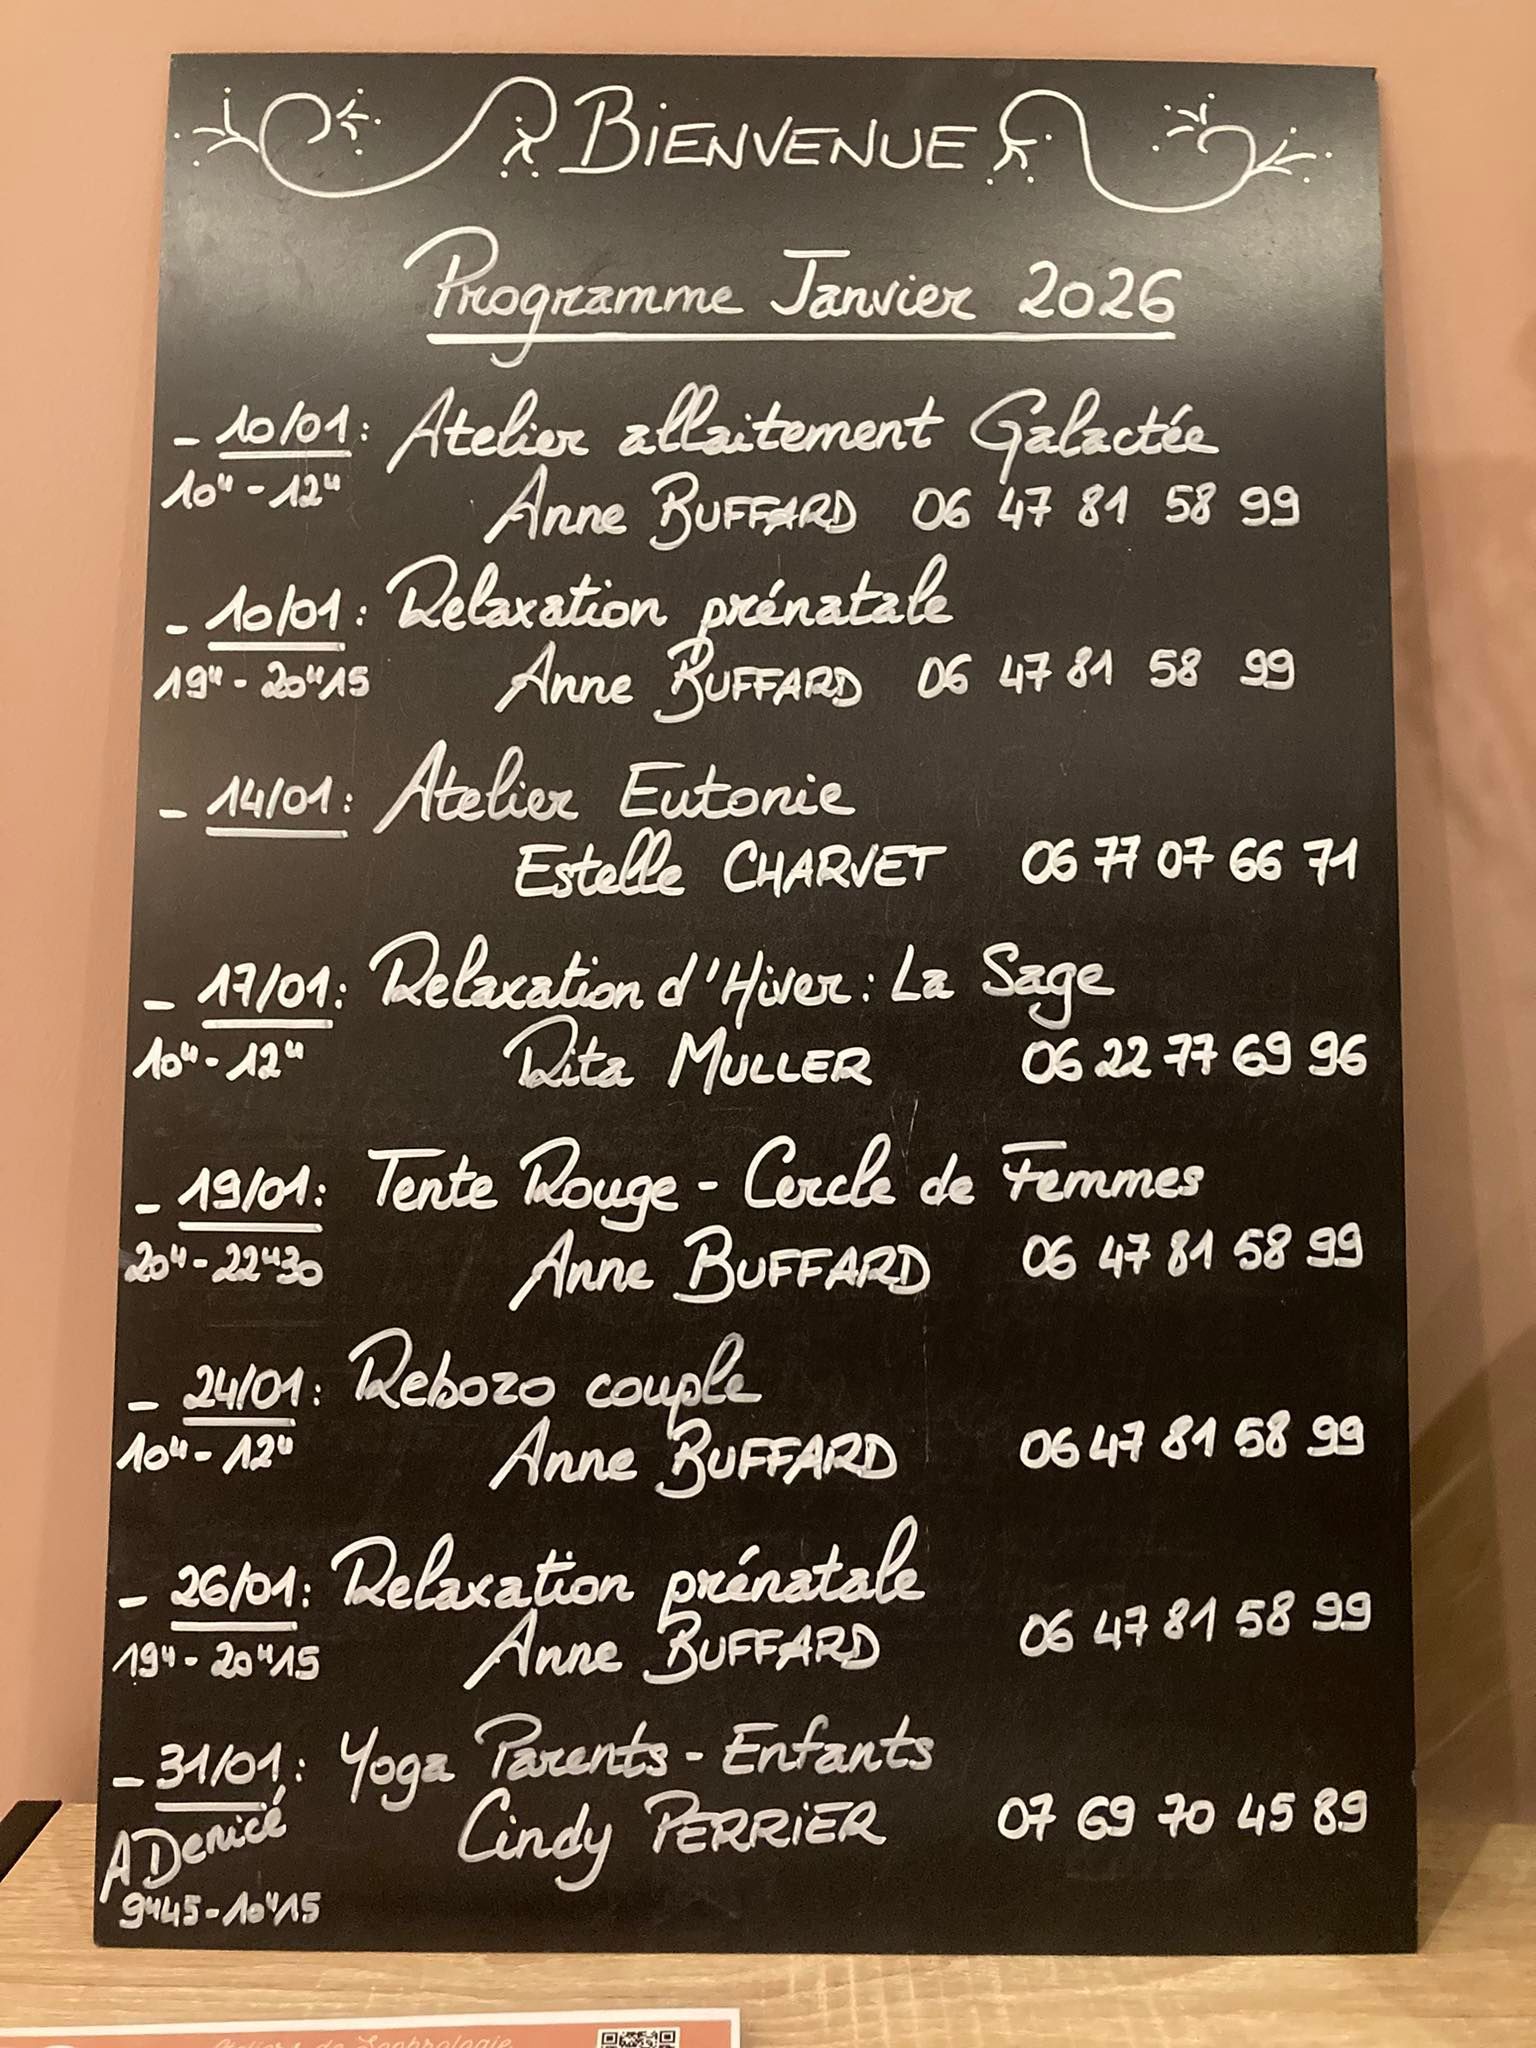 BIENVENUE
Programme Janvier 2026
- 10/01 : Atelier allaitement Galactée
10H - 12H Anne BUFFARD 06 47 81 58 99
- 10/01 : Relaxation prénatale
19H - 20H15 Anne BUFFARD 06 47 81 58 99
- 14/01 : Atelier Eutonie
Estelle CHARVET 06 77 07 66 71
- 17/01 : Relaxation d'Hiver : La Sage
10H - 12H Rita MULLER 06 22 77 69 96
- 19/01 : Tente Rouge - Cercle de Femmes
20H - 22H30 Anne BUFFARD 06 47 81 58 99
- 24/01 : Rebozo couple
10H - 12H Anne BUFFARD 06 47 81 58 99
- 26/01 : Relaxation prénatale
19H - 20H15 Anne BUFFARD 06 47 81 58 99
- 31/01 : Yoga Parents - Enfants
A Denicé Cindy PERRIER 07 69 70 45 89
9H45 - 10H15
de Sophrologie